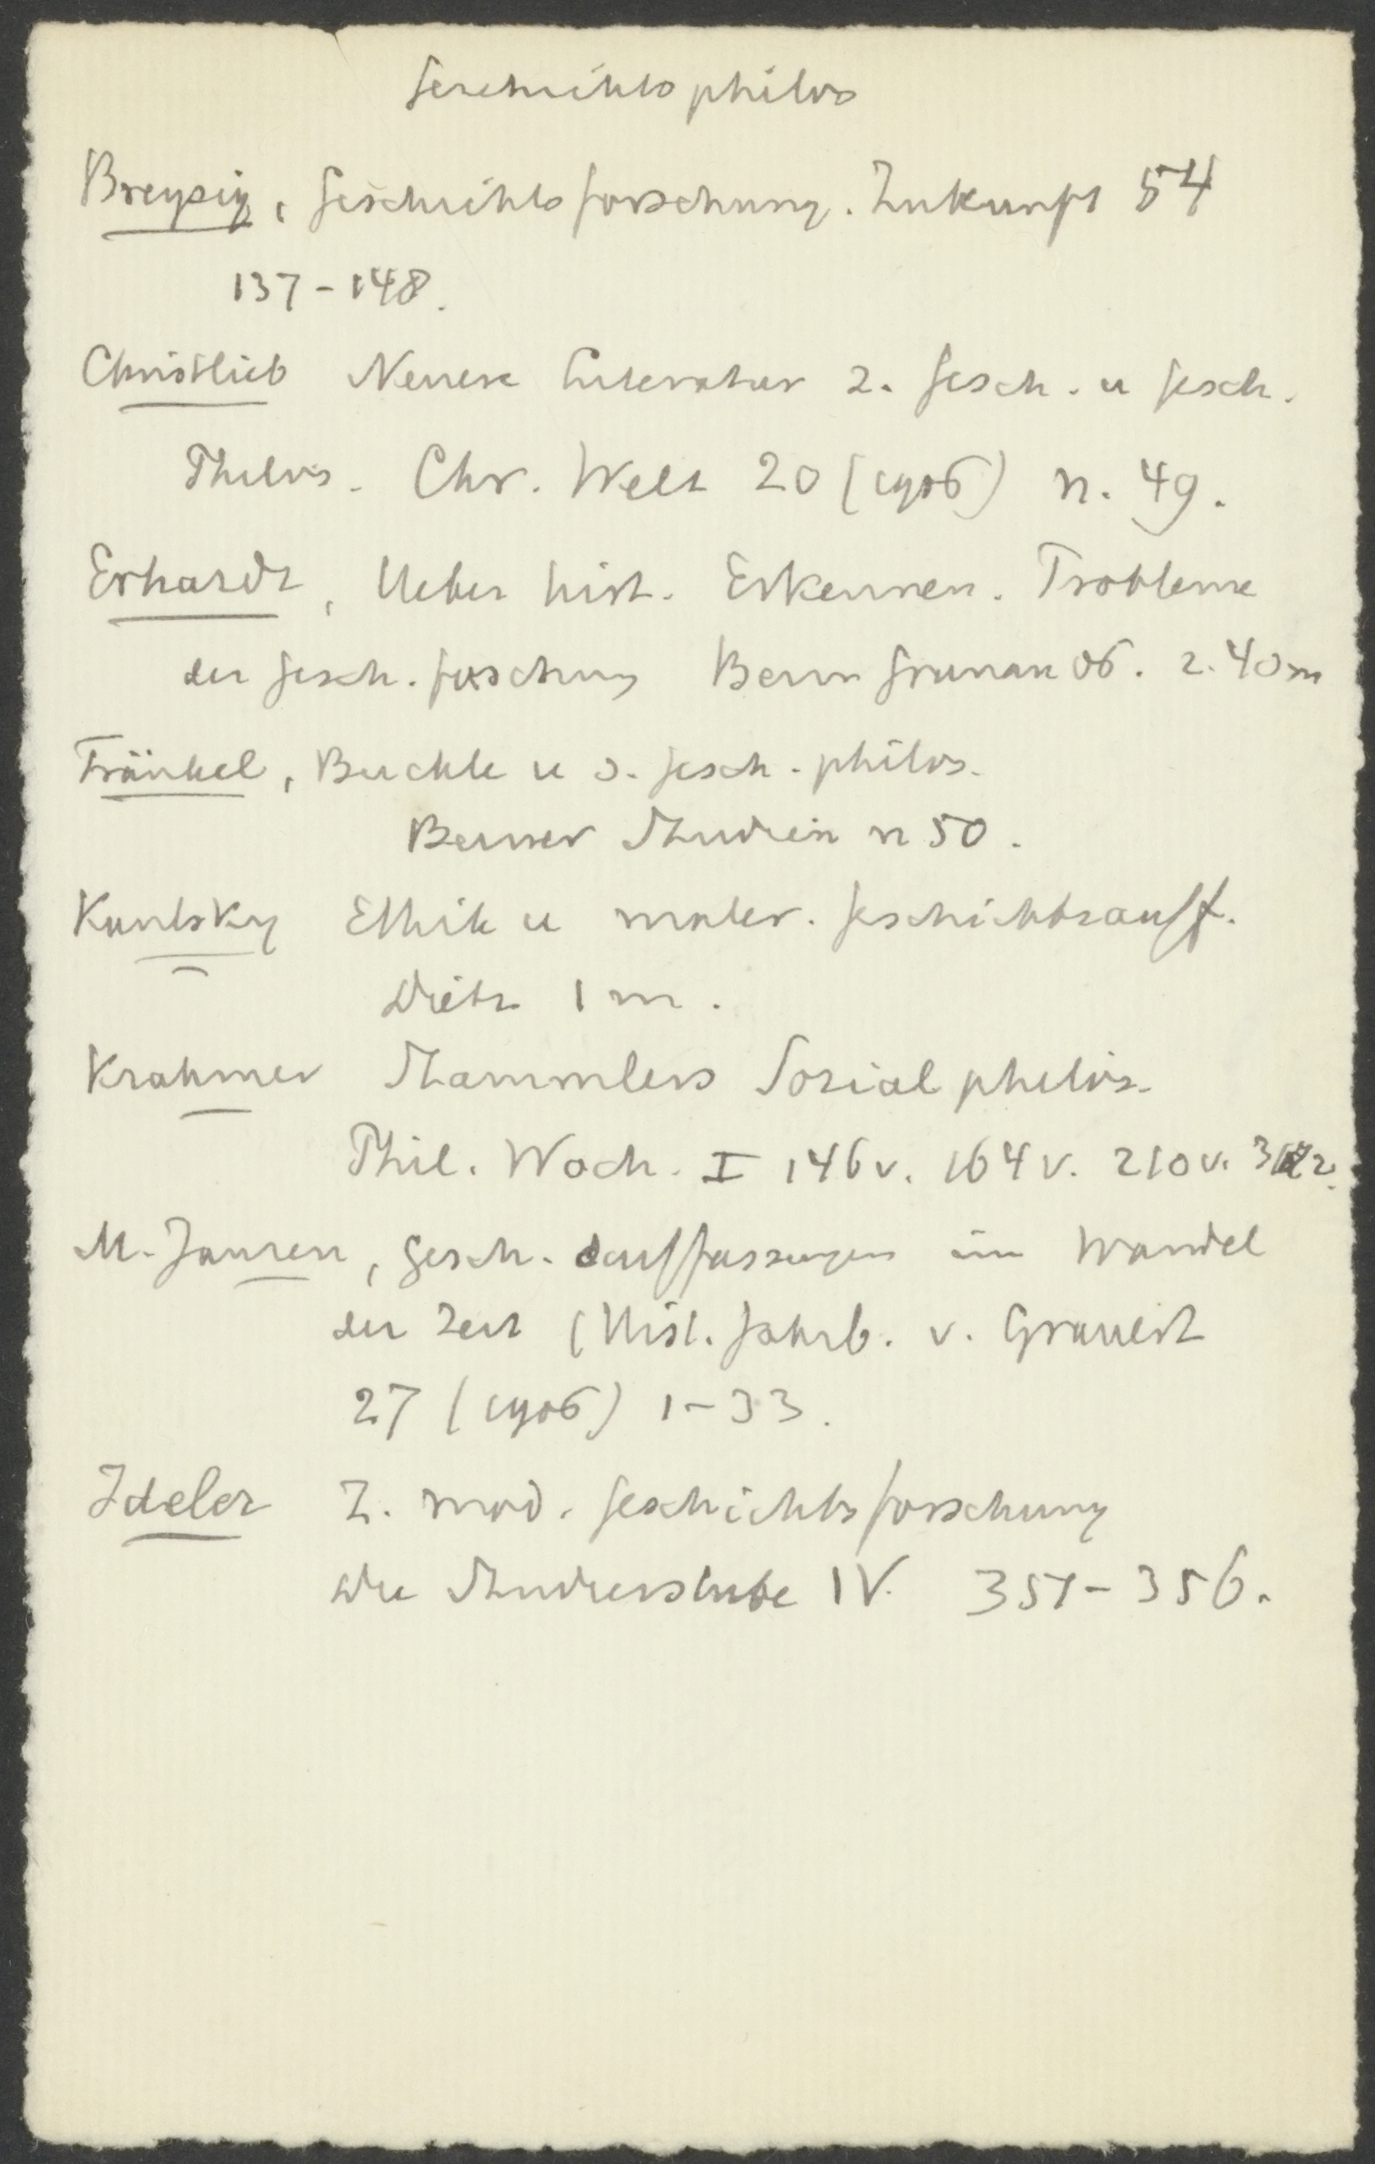 Geschichtsphilos
Breysig, Geschichtsforschung. Zukunft 54
137-148.
Christlieb Neuere Literatur z. Gesch. u Gesch.
Philos. Chr. Welt 20 (1906) n. 49.
Erhardt, Ueber hist. Erkennen. Probleme
der Gesch.forschung Bern Grunau 06. 2.40 m
Fränkel, Buckle u s. Gesch.philos.
Berner Studien n 50.
Kautsky Ethik u mater. Geschichtsauff.
Dietz 1 m.
Krahmer Stammlers Sozialphilos.
Phil. Woch. I 146 v. 164 v. 210 v.
M. Jansen, Gesch. auffassungen im Wandel
der Zeit (Hist. Jahrb. v. Grauert
27 (1906) 1-33.
Ideler Z. mod. Geschichtsforschung
Die Studierstube IV. 351-356.